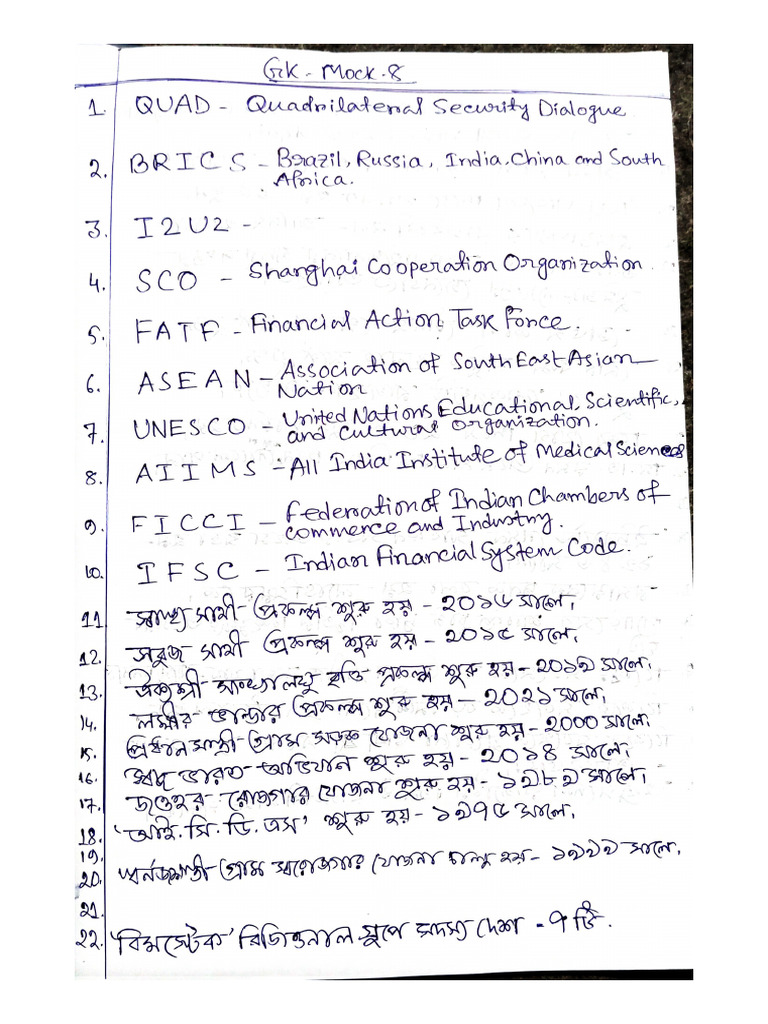 GK - Mock - 8
1. QUAD - Quadrilateral Security Dialogue
2. BRICS - Brazil, Russia, India, China and South
Africa.
3. I2U2 -
4. SCO - Shanghai Cooperation Organization
5. FATF - Financial Action Task Force.
6. ASEAN - Association of South East Asian
Nation
7. UNESCO - United Nations Educational, Scientific,
and Cultural Organization.
8. AIIMS - All India Institute of Medical Sciences
9. FICCI - Federation of Indian Chambers of
commerce and Industry.
10. IFSC - Indian Financial System Code.
11 স্বাস্থ্য সাথী প্রকল্প শুরু হয় - ২০১৬ সালে।
12. সবুজ সাথী প্রকল্প শুরু হয় - ২০১৫ সালে।
13. ঐক্যশ্রী সংখ্যালঘু বৃত্তি প্রকল্প শুরু হয় - ২০১৯ সালে।
14. লক্ষ্মীর ভান্ডার প্রকল্প শুরু হয় - ২০২১ সালে।
15. প্রধানমন্ত্রী গ্রাম সড়ক যোজনা শুরু হয় - 2000 সালে।
16. ভারত অভিযান শুরু হয় - ২০১৪ সালে।
17. জওহর রোজগার যোজনা শুরু হয় - ১৯৮৯ সালে।
18. 'আই. সি. ডি. এস' শুরু হয় - ১৯৭৫ সালে।
19.
20. স্বর্নজয়ন্তী গ্রাম স্বরোজগার যোজনা চালু হয় - ১৯৯৯ সালে।
21.
22. 'বিমস্টেক' রিজিওনাল গ্রুপে সদস্য দেশ - ৭ টি.